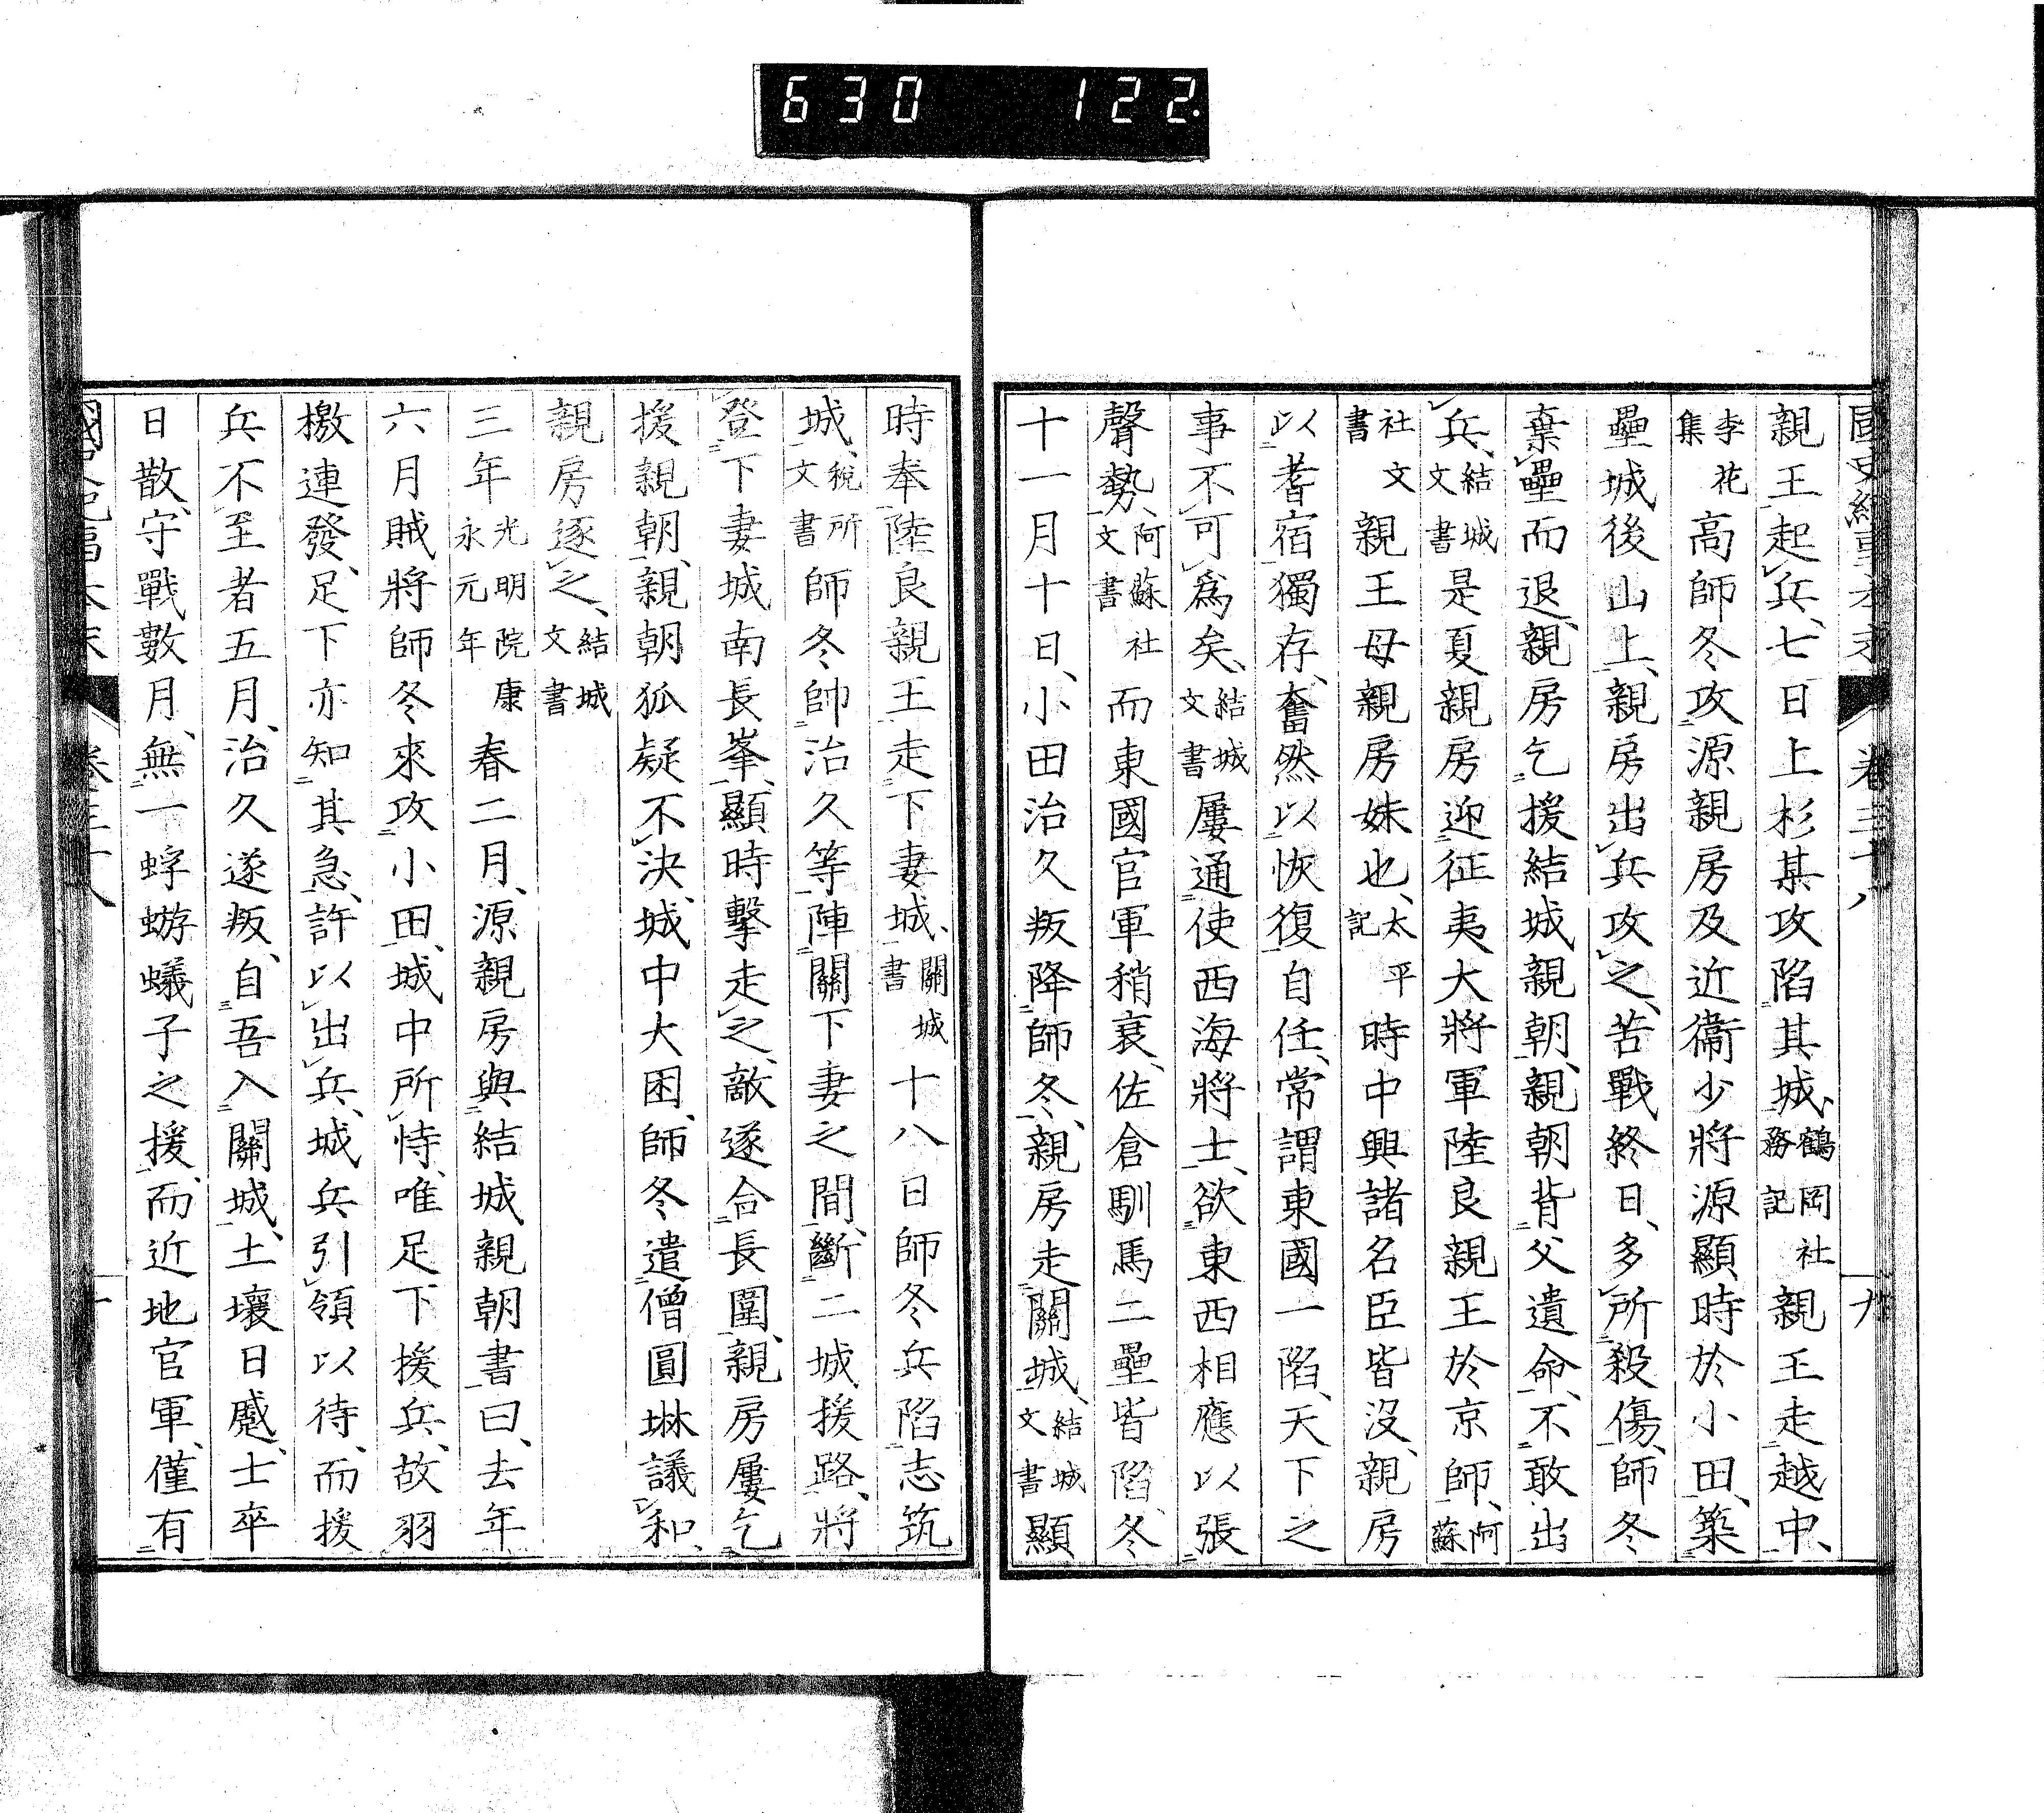 630 122.
國史紀事本末 卷三十八 九
親王起兵、七日上杉某攻陷其城、鶴岡社務記親王走越中、
李花集高師冬攻源親房及近衞少將源顯時於小田、築
壘城後山上、親房出兵攻之、苦戰終日、多所殺傷、師冬
棄壘而退、親房乞援結城親朝、親朝背父遺命、不敢出
兵、結城文書是夏親房迎征夷大將軍陸良親王於京師、阿蘇
社文書親王母親房妹也、太平記時中興諸名臣皆沒、親房
以耆宿獨存、奮然以恢復自任、常謂東國一陷、天下之
事不可爲矣、結城文書屢通使西海將士、欲東西相應以張
聲勢、阿蘇社文書而東國官軍稍衰、佐倉馴馬二壘皆陷、冬
十一月十日、小田治久叛降師冬、親房走關城、結城文書顯
時奉陸良親王走下妻城、關城書十八日師冬兵陷志筑
城、稅所文書師冬帥治久等陣關下妻之間、斷二城援路、將
登下妻城南長峯、顯時擊走之、敵遂合長圍、親房屢乞
援親朝、親朝狐疑不決、城中大困、師冬遣僧圓琳議和、
親房逐之、結城文書
三年光明院康永元年春二月、源親房與結城親朝書曰、去年
六月賊將師冬來攻小田、城中所恃、唯足下援兵、故羽
檄連發、足下亦知其急、許以出兵、城兵引領以待、而援
兵不至者五月、治久遂叛、自吾入關城、土壤日蹙、士卒
日散、守戰數月、無一蜉蝣蟻子之援、而近地官軍、僅有
國史紀事本末 卷三十八 十